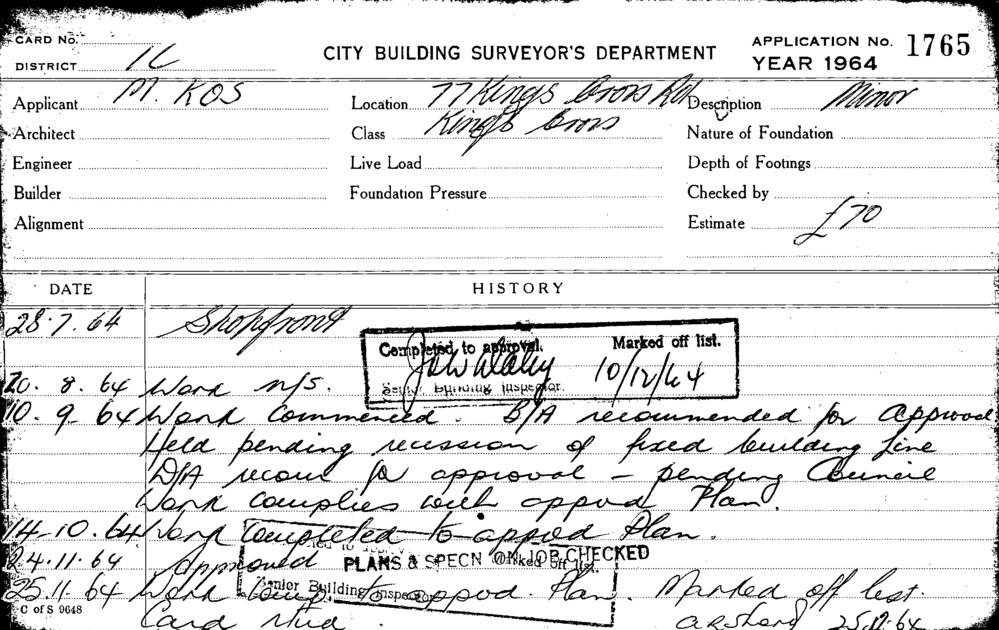 CARD No.
DISTRICT 1C
CITY BUILDING SURVEYOR'S DEPARTMENT
APPLICATION No. 1765
YEAR 1964
Applicant M. KOS
Location 77 Kings Cross Rd
Description Minor
Architect
Class Kings Cross
Nature of Foundation
Engineer
Live Load
Depth of Footings
Builder
Foundation Pressure
Checked by
Alignment
Estimate £70
DATE
HISTORY
28.7.64 Shopfront
Completed to approval. Marked off list.
10/12/64
Senior Building Inspector.
20.8.64 Work n/s.
10.9.64 Work commenced. B/A recommended for approval
Held pending recession of fixed building line
D/A recom for approval - pending Council
Work complies with appvd Plan.
14.10.64 Work completed to appvd Plan.
PLANS & SPECN ON JOB CHECKED
24.11.64 Approved
Marked off list.
Senior Building Inspector
25.11.64 Work comp. to appvd. Plan. Marked off list.
C of S 9648
Card